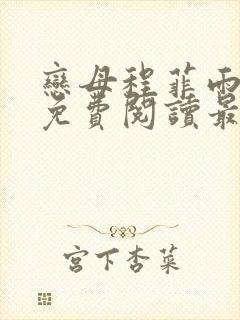 戀母程菲雨
免費閱讀最
宮下杏菜